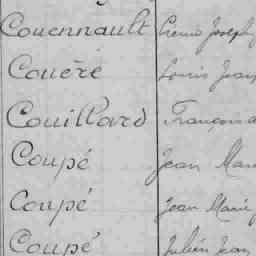 Couennault Pierre Joseph
Couëré Louis Jean
Couillard François
Coupé Jean Marie
Coupé Jean Marie
Coupé Julien Jean